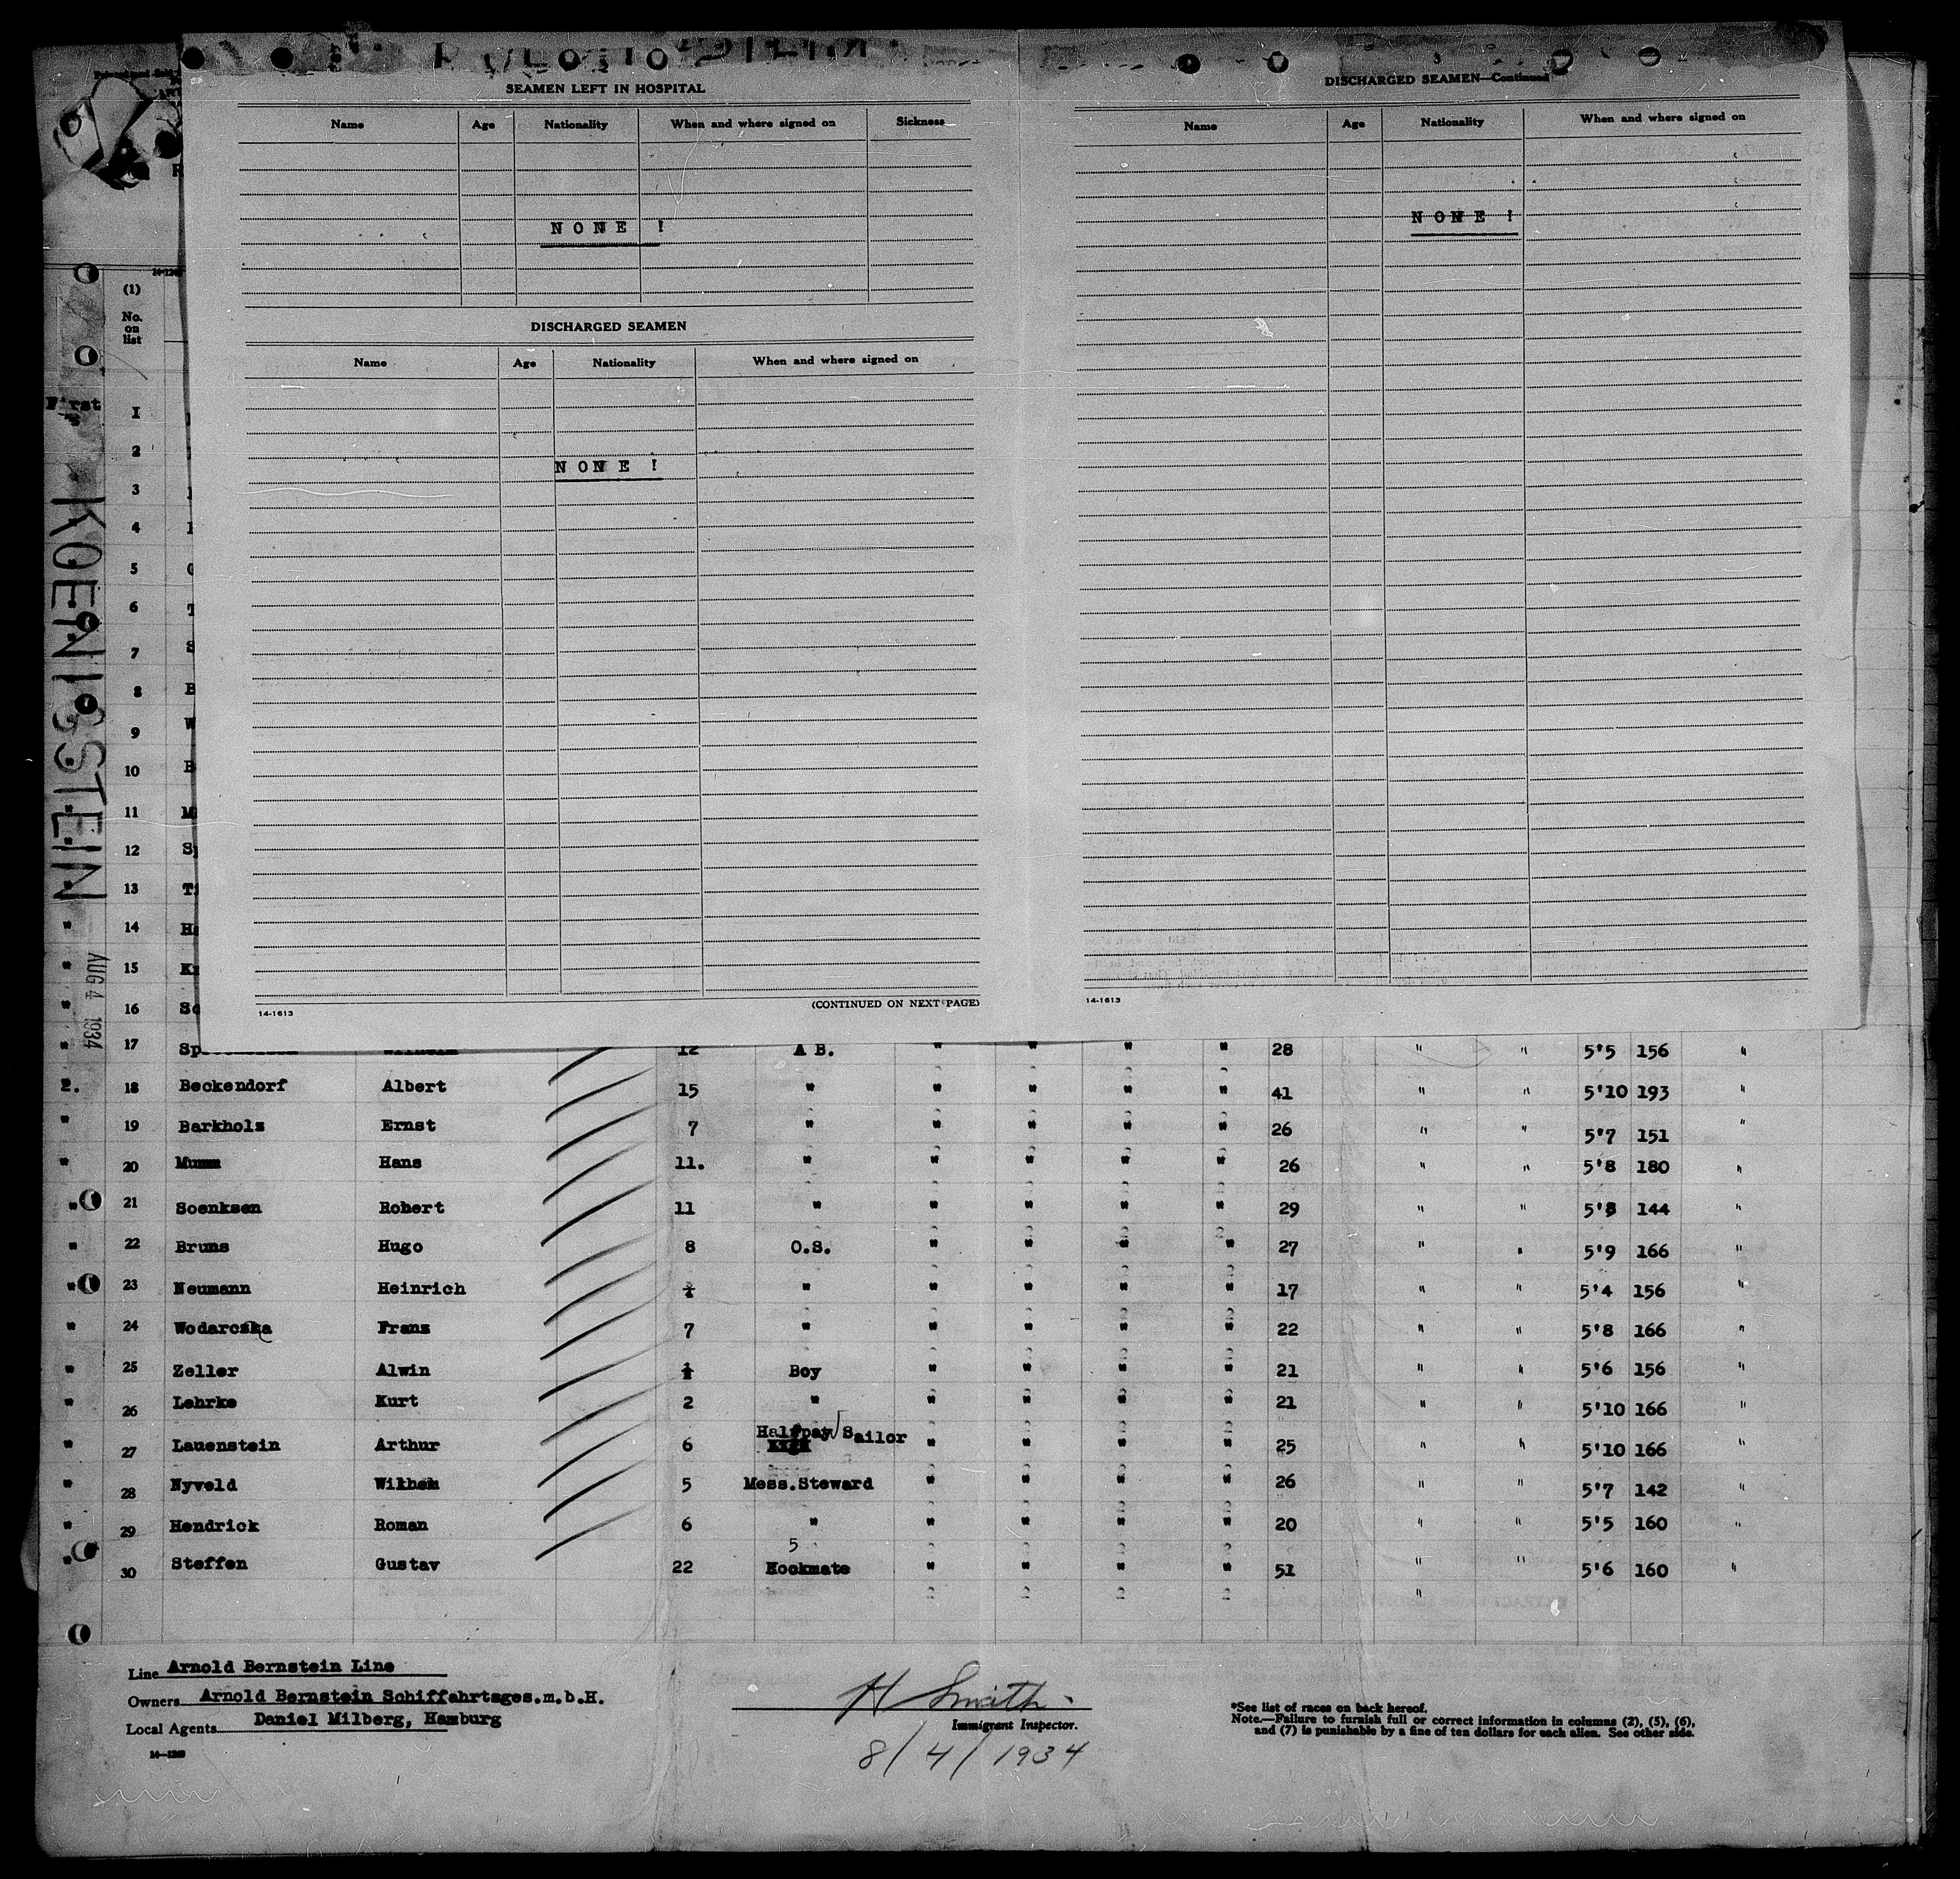 SEAMEN LEFT IN HOSPITAL
Name Age Nationality When and where signed on Sickness
N O N E !
DISCHARGED SEAMEN
Name Age Nationality When and where signed on
N O N E !
(CONTINUED ON NEXT PAGE)
14-1613
3
DISCHARGED SEAMEN—Continued
Name Age Nationality When and where signed on
N O N E !
14-1613
KOENIGSTEIN
AUG 4 1934
(1)
No. on list
First
I
2
3
4
5
6
7
8
9
10
11
12
13
" 14
" 15
" 16
" 17 12 A B. " " " " 28 " " 5'5 156 "
2. 18 Beckendorf Albert 15 " " " " " 41 " " 5'10 193 "
" 19 Barkholz Ernst 7 " " " " " 26 " " 5'7 151 "
" 20 Mumm Hans 11. " " " " " 26 " " 5'8 180 "
" 21 Soenksen Robert 11 " " " " " 29 " " 5'8 144 "
" 22 Bruns Hugo 8 O.S. " " " " 27 " " 5'9 166 "
" 23 Neumann Heinrich " " " " " 17 " " 5'4 156 "
" 24 Wodarczka Franz 7 " " " " " 22 " " 5'8 166 "
" 25 Zeller Alwin Boy " " " " 21 " " 5'6 156 "
" 26 Lehrke Kurt 2 " " " " " 21 " " 5'10 166 "
" 27 Lauenstein Arthur 6 Halfpay Sailor " " " " 25 " " 5'10 166 "
" 28 Nyveld Wilhem 5 Mess.Steward " " " " 26 " " 5'7 142 "
" 29 Hendrick Roman 6 " " " " " 20 " " 5'5 160 "
5
" 30 Steffen Gustav 22 Kockmate " " " " 51 " " 5'6 160 "
Line Arnold Bernstein Line
Owners Arnold Bernstein Schiffahrtsges.m.b.H.
Local Agents Daniel Milberg, Hamburg
14—1240
H Smith
Immigrant Inspector.
8/4/1934
*See list of races on back hereof.
Note.—Failure to furnish full or correct information in columns (2), (5), (6),
and (7) is punishable by a fine of ten dollars for each alien. See other side.